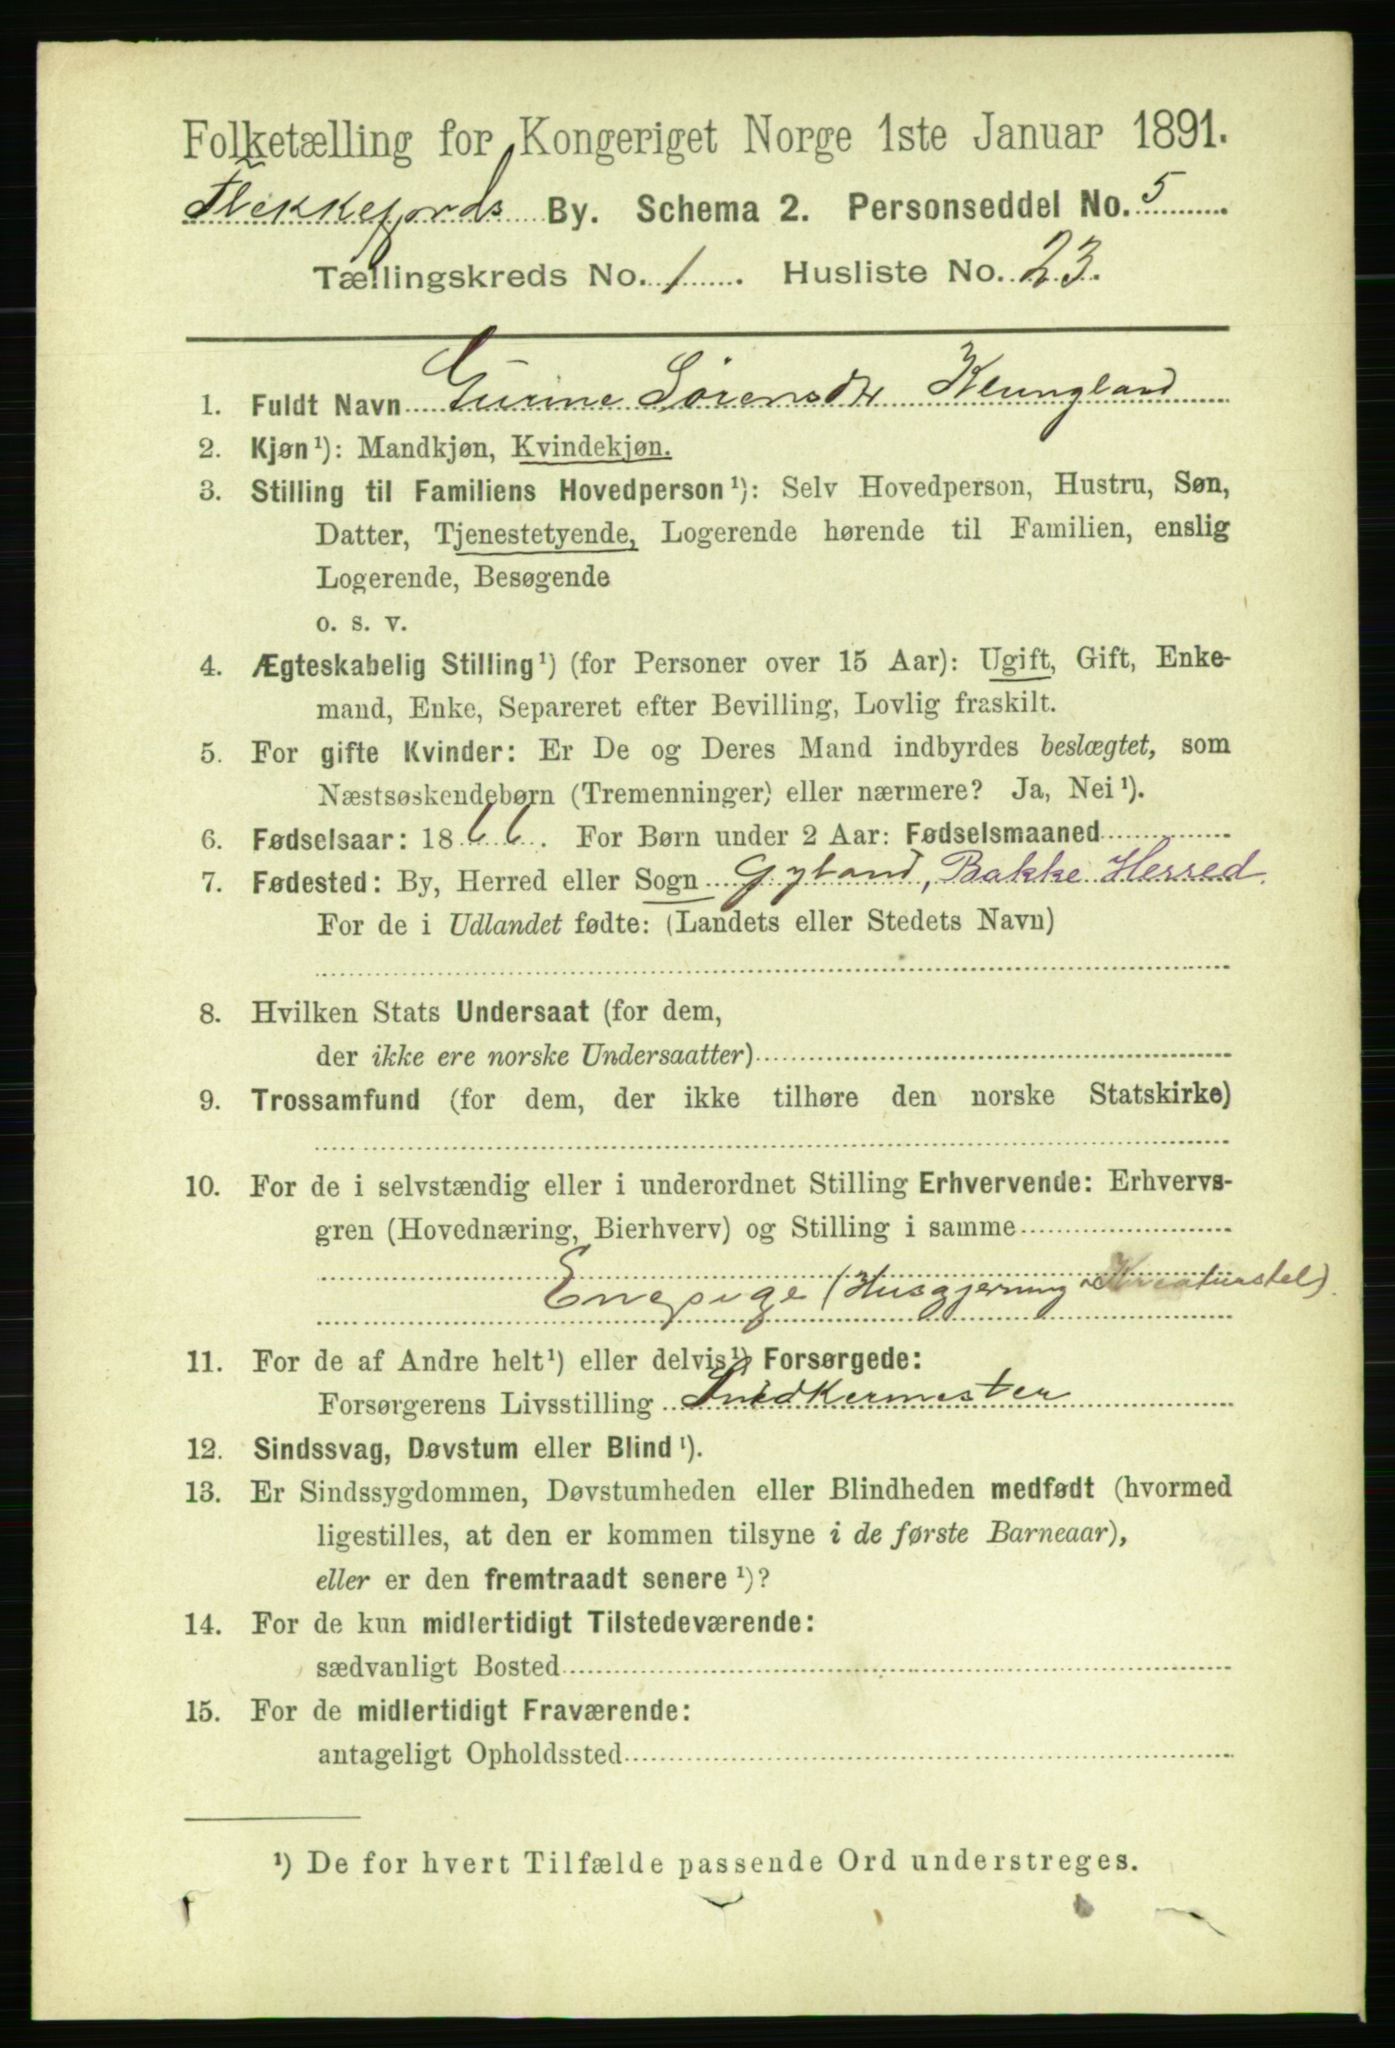 Folketælling for Kongeriget Norge 1ste Januar 1891.
Flekkefjords By. Schema 2. Personseddel No. 5
Tællingskreds No. 1. Husliste No. 23.
1. Fuldt Navn Gurine Sørensdtr Klungland
2. Kjøn¹): Mandkjøn, Kvindekjøn.
3. Stilling til Familiens Hovedperson¹): Selv Hovedperson, Hustru, Søn,
Datter, Tjenestetyende, Logerende hørende til Familien, enslig
Logerende, Besøgende
o. s. v.
4. Ægteskabelig Stilling¹) (for Personer over 15 Aar): Ugift, Gift, Enke-
mand, Enke, Separeret efter Bevilling, Lovlig fraskilt.
5. For gifte Kvinder: Er De og Deres Mand indbyrdes beslægtet, som
Næstsøskendebørn (Tremenninger) eller nærmere? Ja, Nei¹).
6. Fødselsaar: 1866. For Børn under 2 Aar: Fødselsmaaned
7. Fødested: By, Herred eller Sogn Gyland, Bakke Herred.
For de i Udlandet fødte: (Landets eller Stedets Navn)
8. Hvilken Stats Undersaat (for dem,
der ikke ere norske Undersaatter)
9. Trossamfund (for dem, der ikke tilhøre den norske Statskirke)
10. For de i selvstændig eller i underordnet Stilling Erhvervende: Erhvervs-
gren (Hovednæring, Bierhverv) og Stilling i samme
Enepige (Husgjerning & Kreaturstel).
11. For de af Andre helt¹) eller delvis¹) Forsørgede:
Forsørgerens Livsstilling Snedkermester
12. Sindssvag, Døvstum eller Blind¹).
13. Er Sindssygdommen, Døvstumheden eller Blindheden medfødt (hvormed
ligestilles, at den er kommen tilsyne i de første Barneaar),
eller er den fremtraadt senere¹)?
14. For de kun midlertidigt Tilstedeværende:
sædvanligt Bosted
15. For de midlertidigt Fraværende:
antageligt Opholdssted
¹) De for hvert Tilfælde passende Ord understreges.